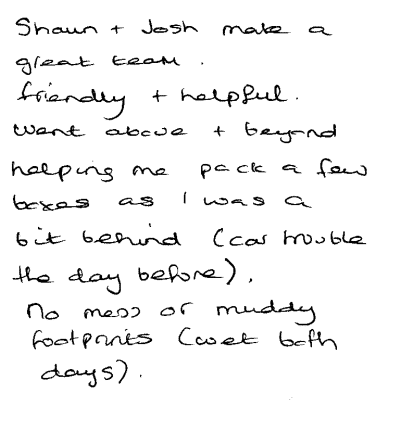 Shaun + Josh make a
great team.
friendly + helpful.
went above + beyond
helping me pack a few
boxes as I was a
bit behind (car trouble
the day before).
No mess or muddy
footprints (wet both
days).